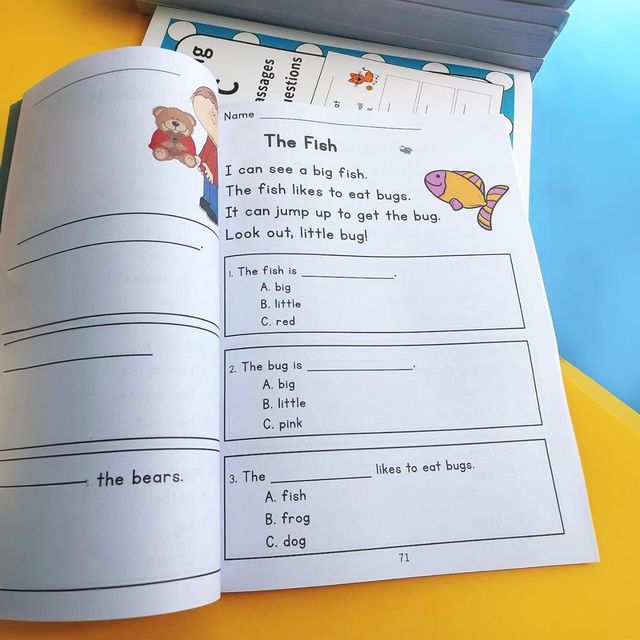 the bears.
ng
C
assages
uestions
Name
The Fish
I can see a big fish.
The fish likes to eat bugs.
It can jump up to get the bug.
Look out, little bug!
1. The fish is ____________.
A. big
B. little
C. red
2. The bug is ____________.
A. big
B. little
C. pink
3. The ____________ likes to eat bugs.
A. fish
B. frog
C. dog
71